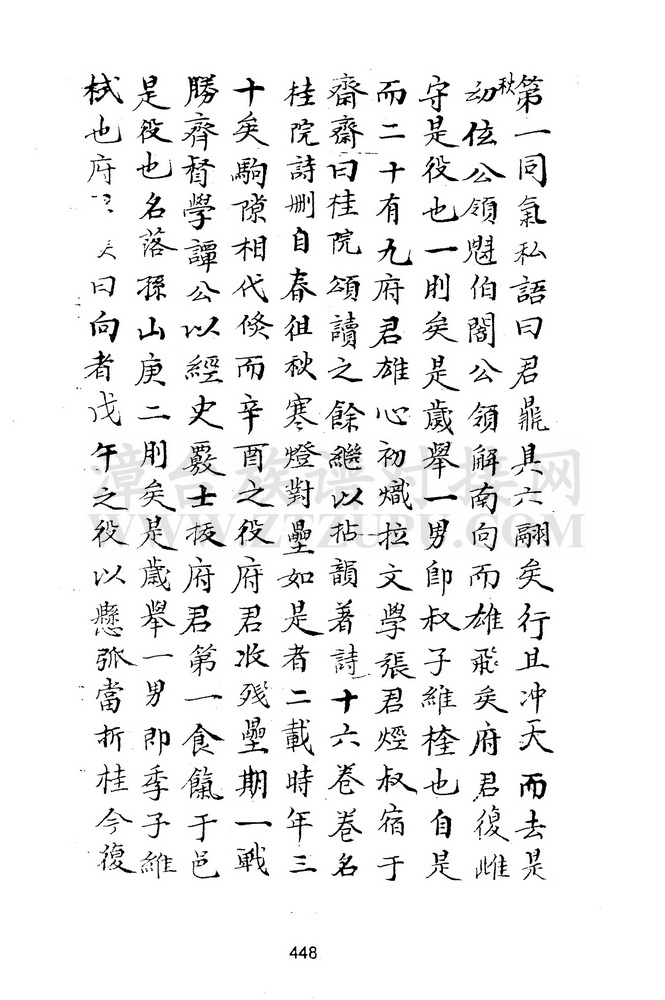 第一同氣私語曰君鼎具六翮矣行且冲天而去是
秋
幼位公領魁伯閣公領解南向而雄飛矣府君復雌
守是役也一刖矣是歲舉一男即叔子維楏也自是
而二十有九府君雄心初熾拉文學張君煙叔宿于
齋齋曰桂院頌讀之餘繼以拈韻著詩十六卷卷名
桂院詩刪自春徂秋寒燈對壘如是者二載時年三
十矣駒隙相代倏而辛酉之役府君收殘壘期一戰
勝齊督學譚公以經史覈士拔府君第一食餼于邑
是役也名落孫山庚二刖矣是歲舉一男即季子維
栻也府曰向者戊午之役以懸弧當折桂今復
漳台族谱对接网
WWW.ZTZUPU.COM
448